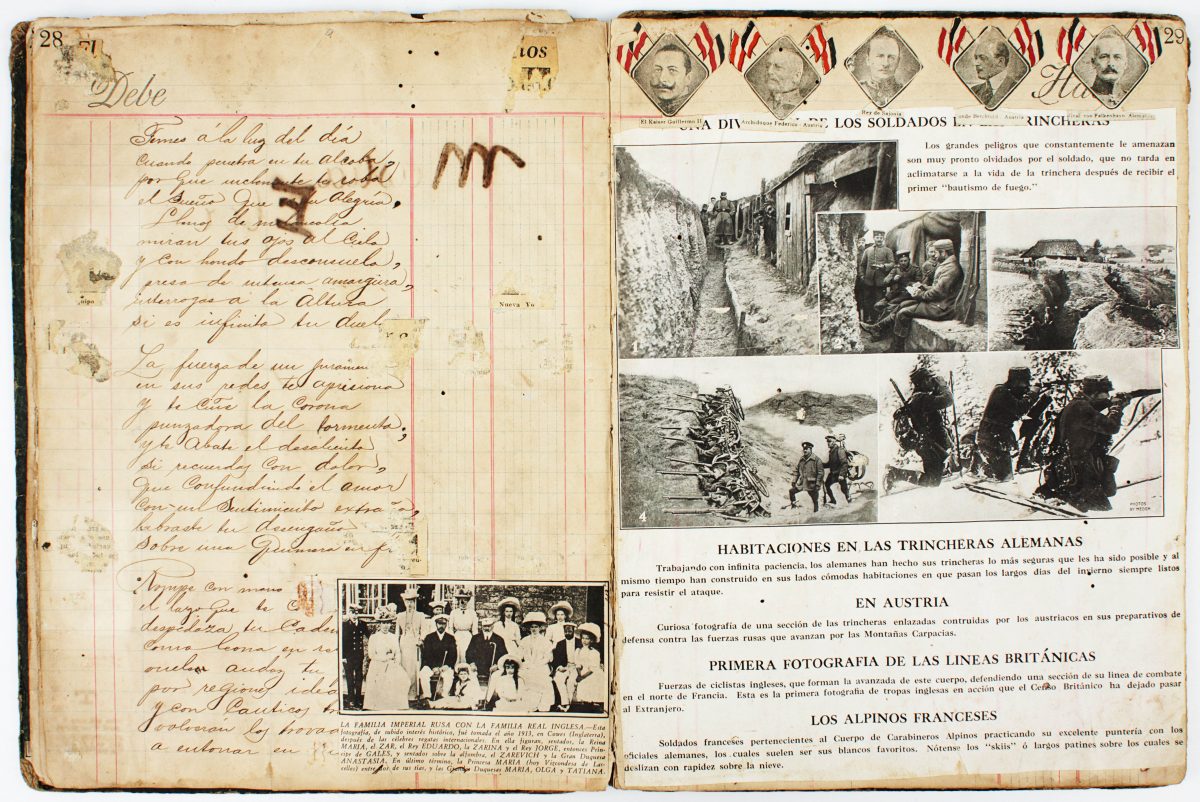 28
El
Debe
tos
Temes á la luz del día
Cuando penetra en tu alcoba,
por que inclemente te roba
el Sueño que tu Alegría,
Llenos de melancolía
miran tus ojos al Cielo
y con hondo desconsuelo,
presa de intensa amargura,
interrogas a la Altura
si es infinito tu duel
M
La fuerza de un juramen
en sus redes te aprisiona
y te Ciñe la Corona
punzadora del tormento;
y te Abate el desaliento
si recuerdas Con dolor,
que Confundiendo el amor
con un Sentimiento extraño,
labraste tu desengaño
Sobre una Quimera en
Rompe con mano
el lazo que te
despedaza tu Cade
Como leona en
audaz tu
por regiones idea
y con Canticos
volverán los trovad
a entonar en
Nueva Yo
LA FAMILIA IMPERIAL RUSA CON LA FAMILIA REAL INGLESA.—Esta
fotografía, de subido interés histórico, fué tomada el año 1913, en Cowes (Inglaterra),
después de las célebres regatas internacionales. En ella figuran, sentados, la Reina
MARIA, el ZAR, el Rey EDUARDO, la ZARINA y el Rey JORGE, entonces Prín-
cipe de GALES, y sentados sobre la alfombra, el ZAREVICH y la Gran Duquesa
ANASTASIA. En último término, la Princesa MARIA (hoy Vizcondesa de Las-
celles) entre dos de sus tías, y las Grandes Duquesas MARIA, OLGA y TATIANA.
29
Ha
El Kaiser Guillermo II
Archiduque Federico - Austria
Rey de Sajonia
onde Berchtold - Austria
von Falkenhayn Alemania
UNA DIV DE LOS SOLDADOS EN LAS TRINCHERAS
Los grandes peligros que constantemente le amenazan
son muy pronto olvidados por el soldado, que no tarda en
aclimatarse a la vida de la trinchera después de recibir el
primer "bautismo de fuego."
1
4
PHOTOS
BY MEDEM
HABITACIONES EN LAS TRINCHERAS ALEMANAS
Trabajando con infinita paciencia, los alemanes han hecho sus trincheras lo más seguras que les ha sido posible y al
mismo tiempo han construido en sus lados cómodas habitaciones en que pasan los largos días del invierno siempre listos
para resistir el ataque.
EN AUSTRIA
Curiosa fotografía de una sección de las trincheras enlazadas contruidas por los austriacos en sus preparativos de
defensa contra las fuerzas rusas que avanzan por las Montañas Carpacias.
PRIMERA FOTOGRAFIA DE LAS LINEAS BRITÁNICAS
Fuerzas de ciclistas ingleses, que forman la avanzada de este cuerpo, defendiendo una sección de su linea de combate
en el norte de Francia. Esta es la primera fotografía de tropas inglesas en acción que el Británico ha dejado pasar
al Extranjero.
LOS ALPINOS FRANCESES
Soldados franceses pertenecientes al Cuerpo de Carabineros Alpinos practicando su excelente puntería con los
oficiales alemanes, los cuales suelen ser sus blancos favoritos. Nótense los "skiis" ó largos patines sobre los cuales se
deslizan con rapidez sobre la nieve.